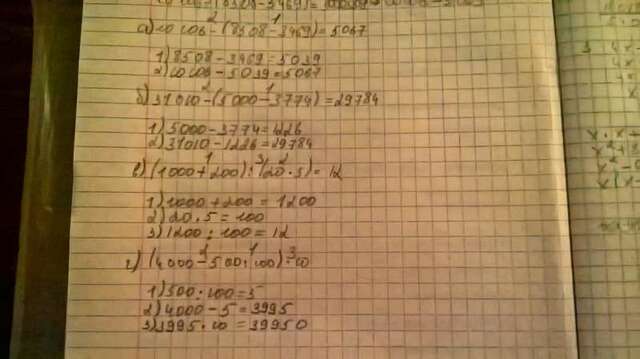 а) 10 106 - (8508 - 3469) = 5067
1) 8508 - 3469 = 5039
2) 10 106 - 5039 = 5067
б) 31 010 - (5 000 - 3774) = 29784
1) 5000 - 3774 = 1226
2) 31010 - 1226 = 29784
в) (1000 + 200) : (20 · 5) = 12
1) 1000 + 200 = 1200
2) 20 · 5 = 100
3) 1200 : 100 = 12
г) (4000 - 500 : 100) · 10
1) 500 : 100 = 5
2) 4000 - 5 = 3995
3) 3995 · 10 = 39950